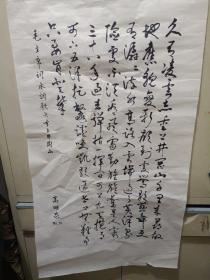 久有凌云志重上井冈山千里来寻故
地旧貌变新颜到处莺歌燕舞更
有潺潺流水高路入云端过了黄洋界
险处不须看风雷动旌旗奋是人寰
三十八年过去弹指一挥间可上九天揽月
可下五洋捉鳖谈笑凯歌还世上无难事
只要肯登攀
毛主席词水调歌头重上井冈山